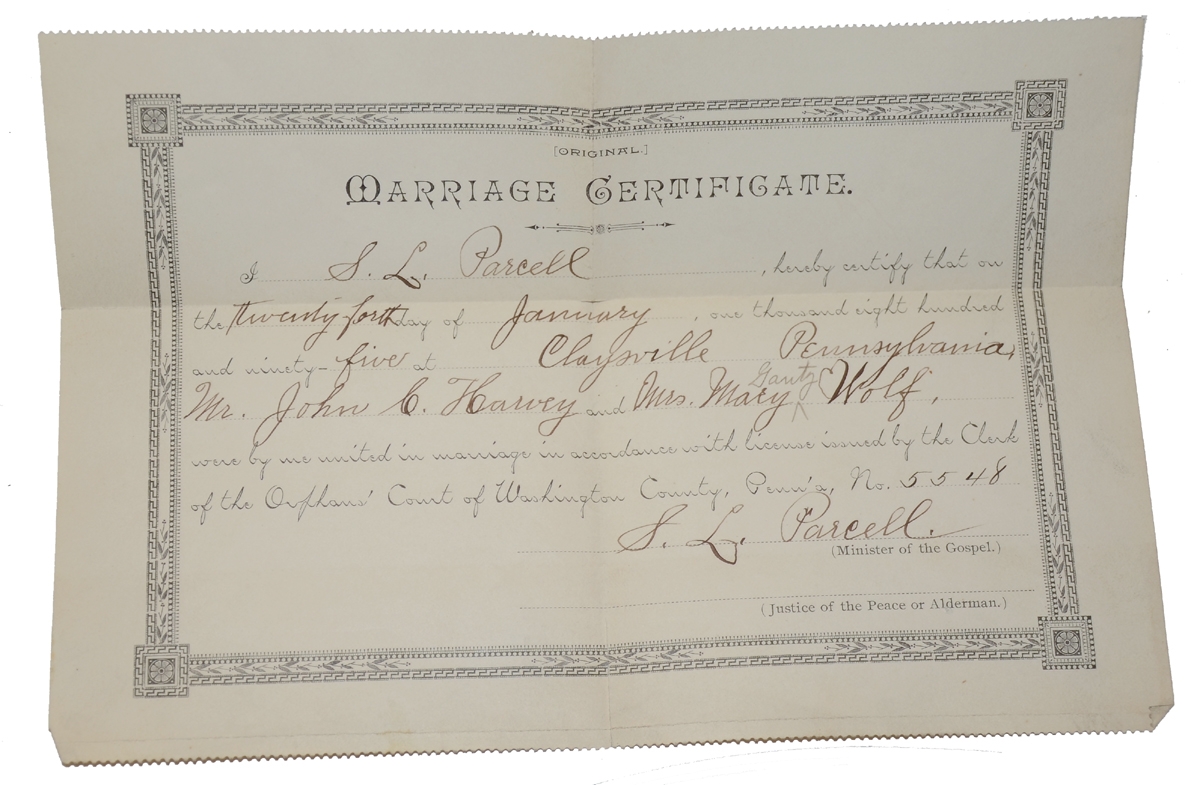 [ORIGINAL.]
MARRIAGE CERTIFICATE.
I S. L. Parcell, hereby certify that on
the twenty forth day of January, one thousand eight hundred
and ninety-five at Claysville Pennsylvania,
Gantz
Mr. John C. Harvey and Mrs. Mary ^ Wolf,
were by me united in marriage in accordance with license issued by the Clerk
of the Orphans' Court of Washington County, Penn'a, No. 5548
S. L. Parcell.
(Minister of the Gospel.)
(Justice of the Peace or Alderman.)